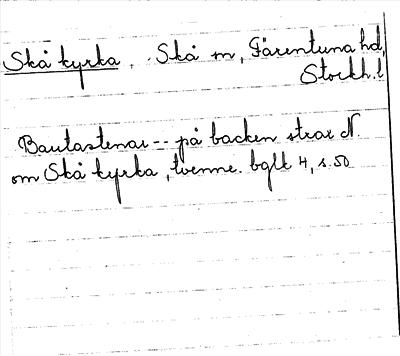 Skå kyrka, Skå sn, Färentuna hd,
Stockh. l
Bautastenar -- på backen strax N.
om Skå kyrka, tvenne. bglk 4, s. 50